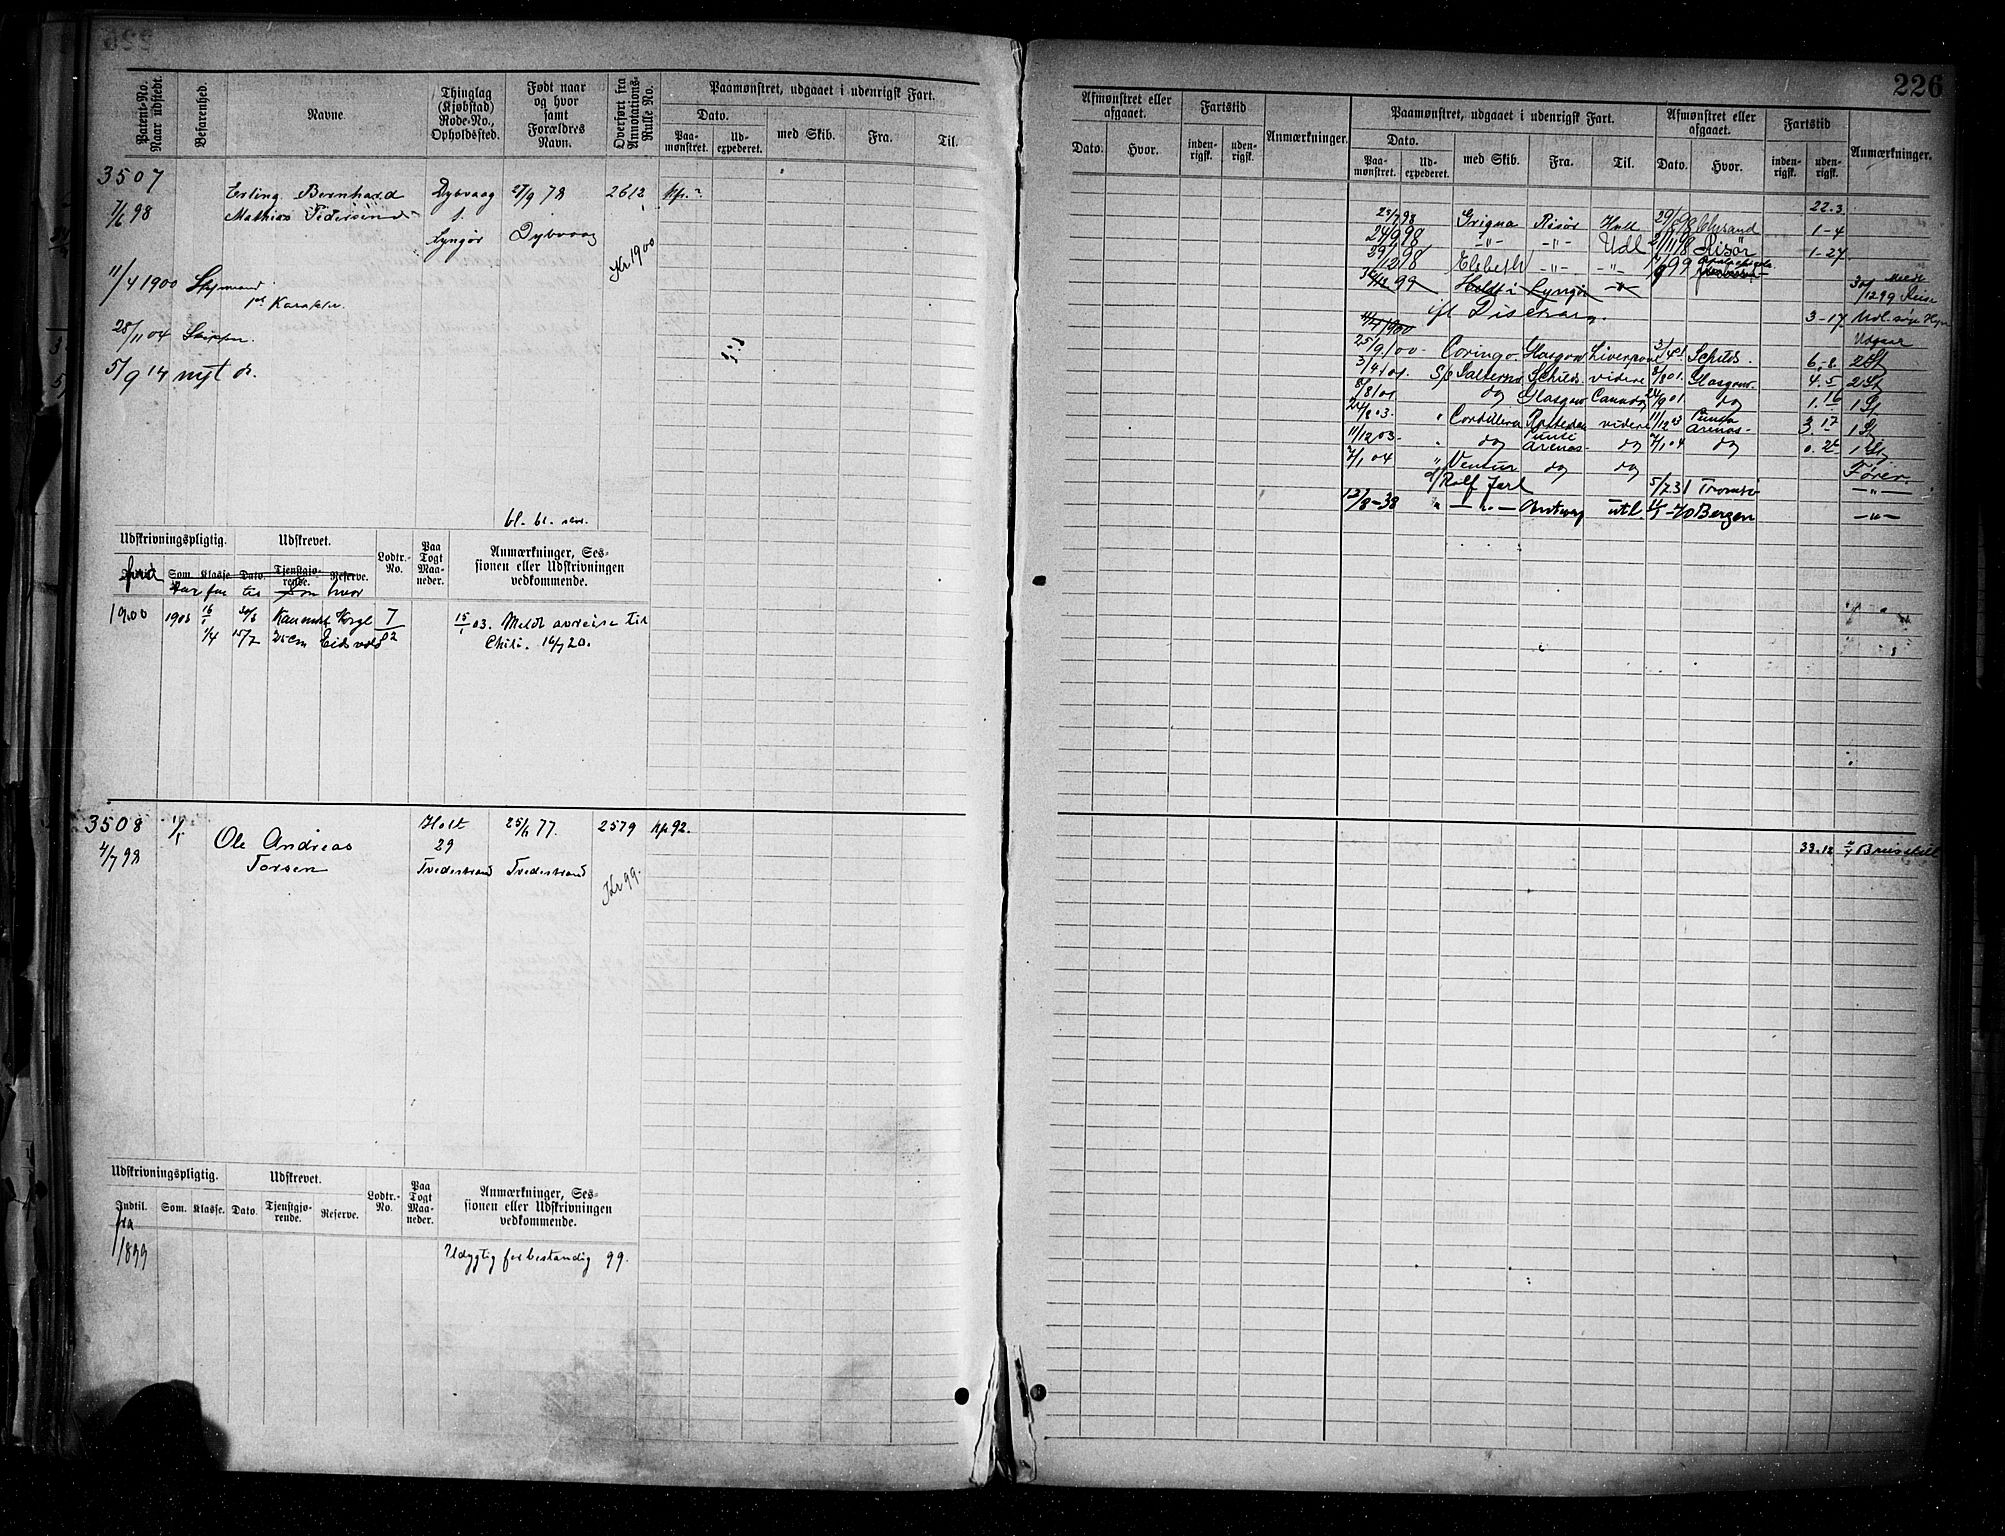 226
Patent-No. Naar udstedt.
Befarenhed.
Navne.
Thinglag (Kjøbstad) Rode-No., Opholdssted.
Født naar og hvor samt Forældres Navn.
Overført fra Annotations-Rulle No.
Paamønstret, udgaaet i udenrigsk Fart.
Dato.
Paa-mønstret.
Ud-expederet.
med Skib.
Fra.
Til.
3507
7/6 98
Erling Bernhard
Mathias Pedersen
Dybvaag
1.
Lyngør
27/9 78
Dybvaag
2612
Kr. 1900
11/4 1900
1ste Karakter.
28/11 04 Skipper
5/9 14 nyt d.
Udskrivningspligtig.
Udskrevet.
Lodtr.-No.
Paa Togt Maa-neder.
Anmærkninger, Ses-sionen eller Udskrivningen vedkommende.
Som. Klasse. Dato. Tjenstgjø-rende. Reserve.
1900
1903
16/1
30/3
7/4
15/7
Eidsvold
7
02
15/1 03. Meldt avreise til
Chili. 16/7 20.
3508
4/7 98
Ole Andreas
Torsen
Holt
29
Tvedestrand
25/1 77.
Tvedestrand
2579
Kr 99.
92.
Udskrivningspligtig.
Udskrevet.
Lodtr.-No.
Paa Togt Maa-neder.
Anmærkninger, Ses-sionen eller Udskrivningen vedkommende.
Indtil. Som. Klasse. Dato. Tjenstgjø-rende. Reserve.
fra
1/1899
Udygtig for bestandig 99.
Afmønstret eller afgaaet.
Dato.
Hvor.
Fartstid
inden-rigsk.
uden-rigsk.
Anmærkninger.
Paamønstret, udgaaet i udenrigsk Fart.
Dato.
Paa-mønstret.
Ud-expederet.
med Skib.
Fra.
Til.
Afmønstret eller afgaaet.
Dato.
Hvor.
Fartstid
inden-rigsk.
uden-rigsk.
Anmærkninger.
22.3
Grigna Risør Hull 1-4
24/9 98 -"- -"- Udl 2/11 98 Risør 1-27
29/12 98 Elsbeth -"- -"-
Lyngør
3-17
Udgaar
25/9 00 Coringo Glasgow Liverpool 3/4 01 Schilds. 6-8 2 St
3/4 01 S/S Salterno Schilds videre 8/8 01 Glasgow 4.5 2 St
8/8 01 do Glasgow Canada 24/9 01 do 1.16 1 St
24/8 03 " Cordillera Rotterdam videre 11/12 03 Punta Arenas 3.17 1 St
11/12 03 " do Punta Arenas do 7/1 04 do 0.26 1 St
7/1 04 " Ventur do do Fører
d/ Rolf Jarl 5/7 31 Tromsø -"-
12/8-38 " -"- Antwerp utl. -40 Bergen -"-
33.12